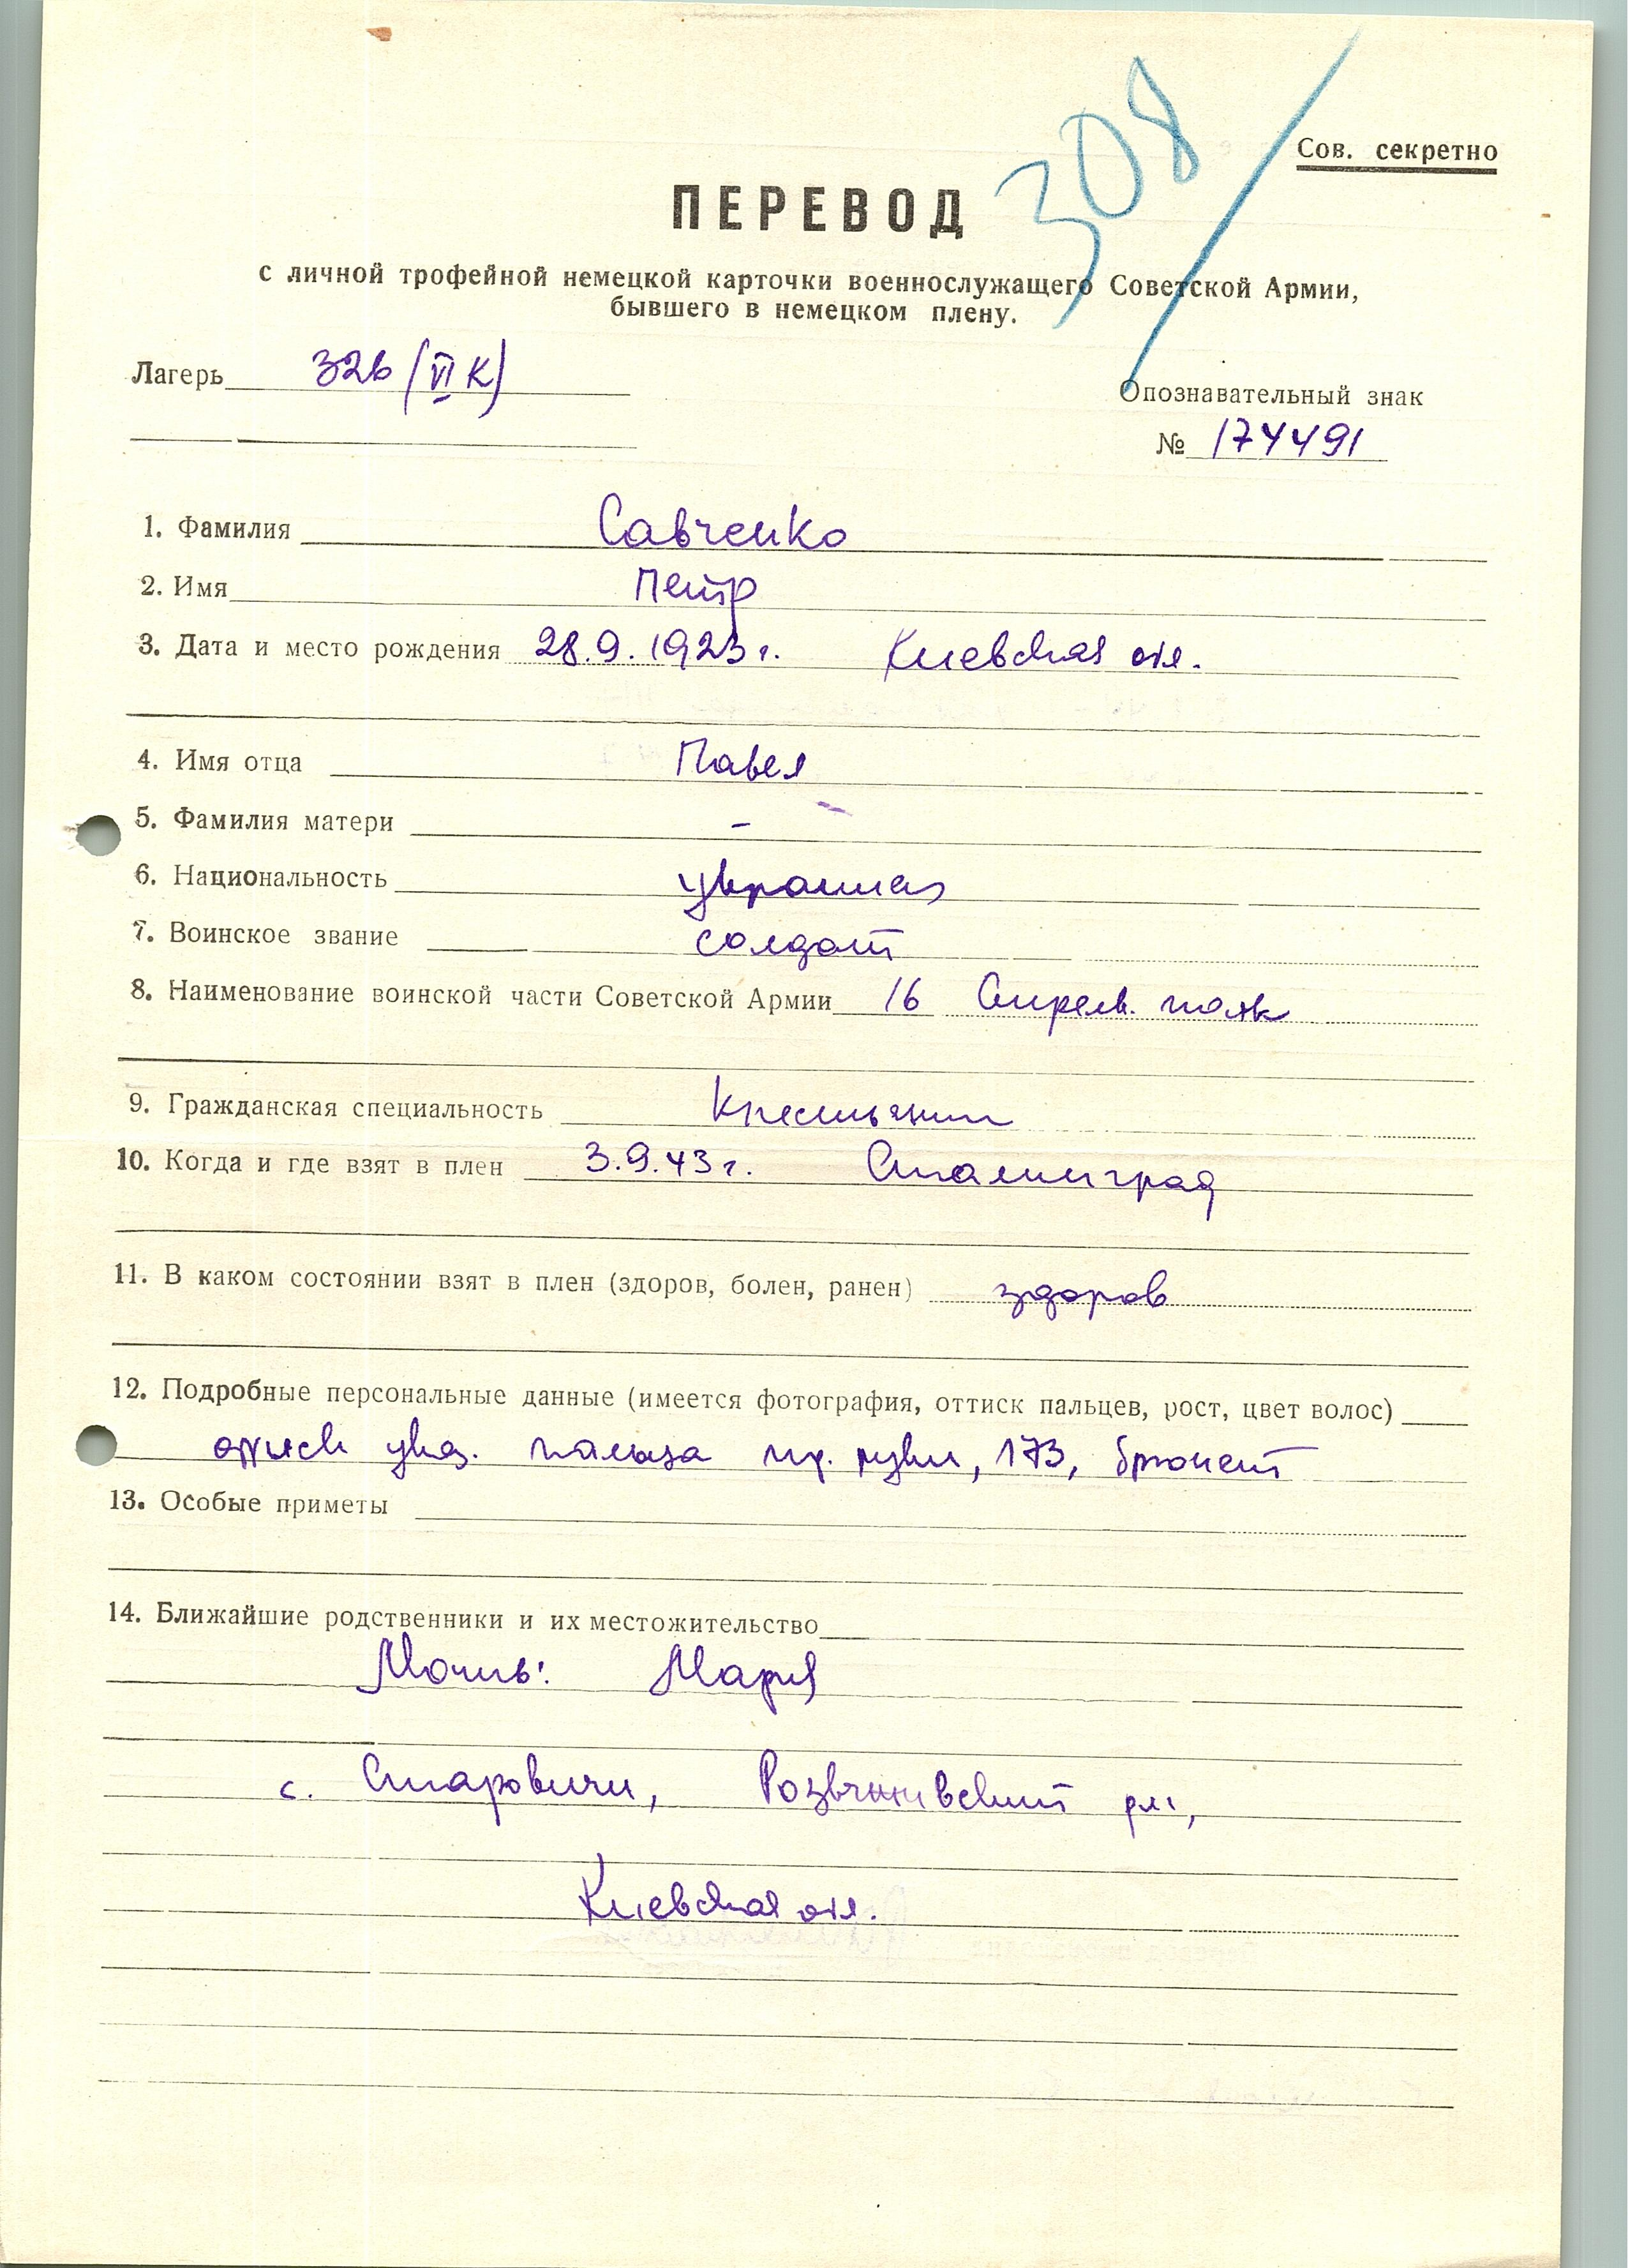 308/
Сов. секретно
ПЕРЕВОД
с личной трофейной немецкой карточки военнослужащего Советской Армии,
бывшего в немецком плену.
Лагерь 326 (VI K)
Опознавательный знак
№ 174491
1. Фамилия Савченко
2. Имя Петр
3. Дата и место рождения 28.9.1923 г. Киевская обл.
4. Имя отца Павел
5. Фамилия матери –
6. Национальность украинец
7. Воинское звание солдат
8. Наименование воинской части Советской Армии 16 Стрелк. полк
9. Гражданская специальность Крестьянин
10. Когда и где взят в плен 3.9.43 г. Сталинград
11. В каком состоянии взят в плен (здоров, болен, ранен) здоров
12. Подробные персональные данные (имеется фотография, оттиск пальцев, рост, цвет волос)
оттиск указ. пальца пр. руки, 173, брюнет
13. Особые приметы
14. Ближайшие родственники и их местожительство
Мать: Мария
с. Старовичи, р-н,
Киевская обл.